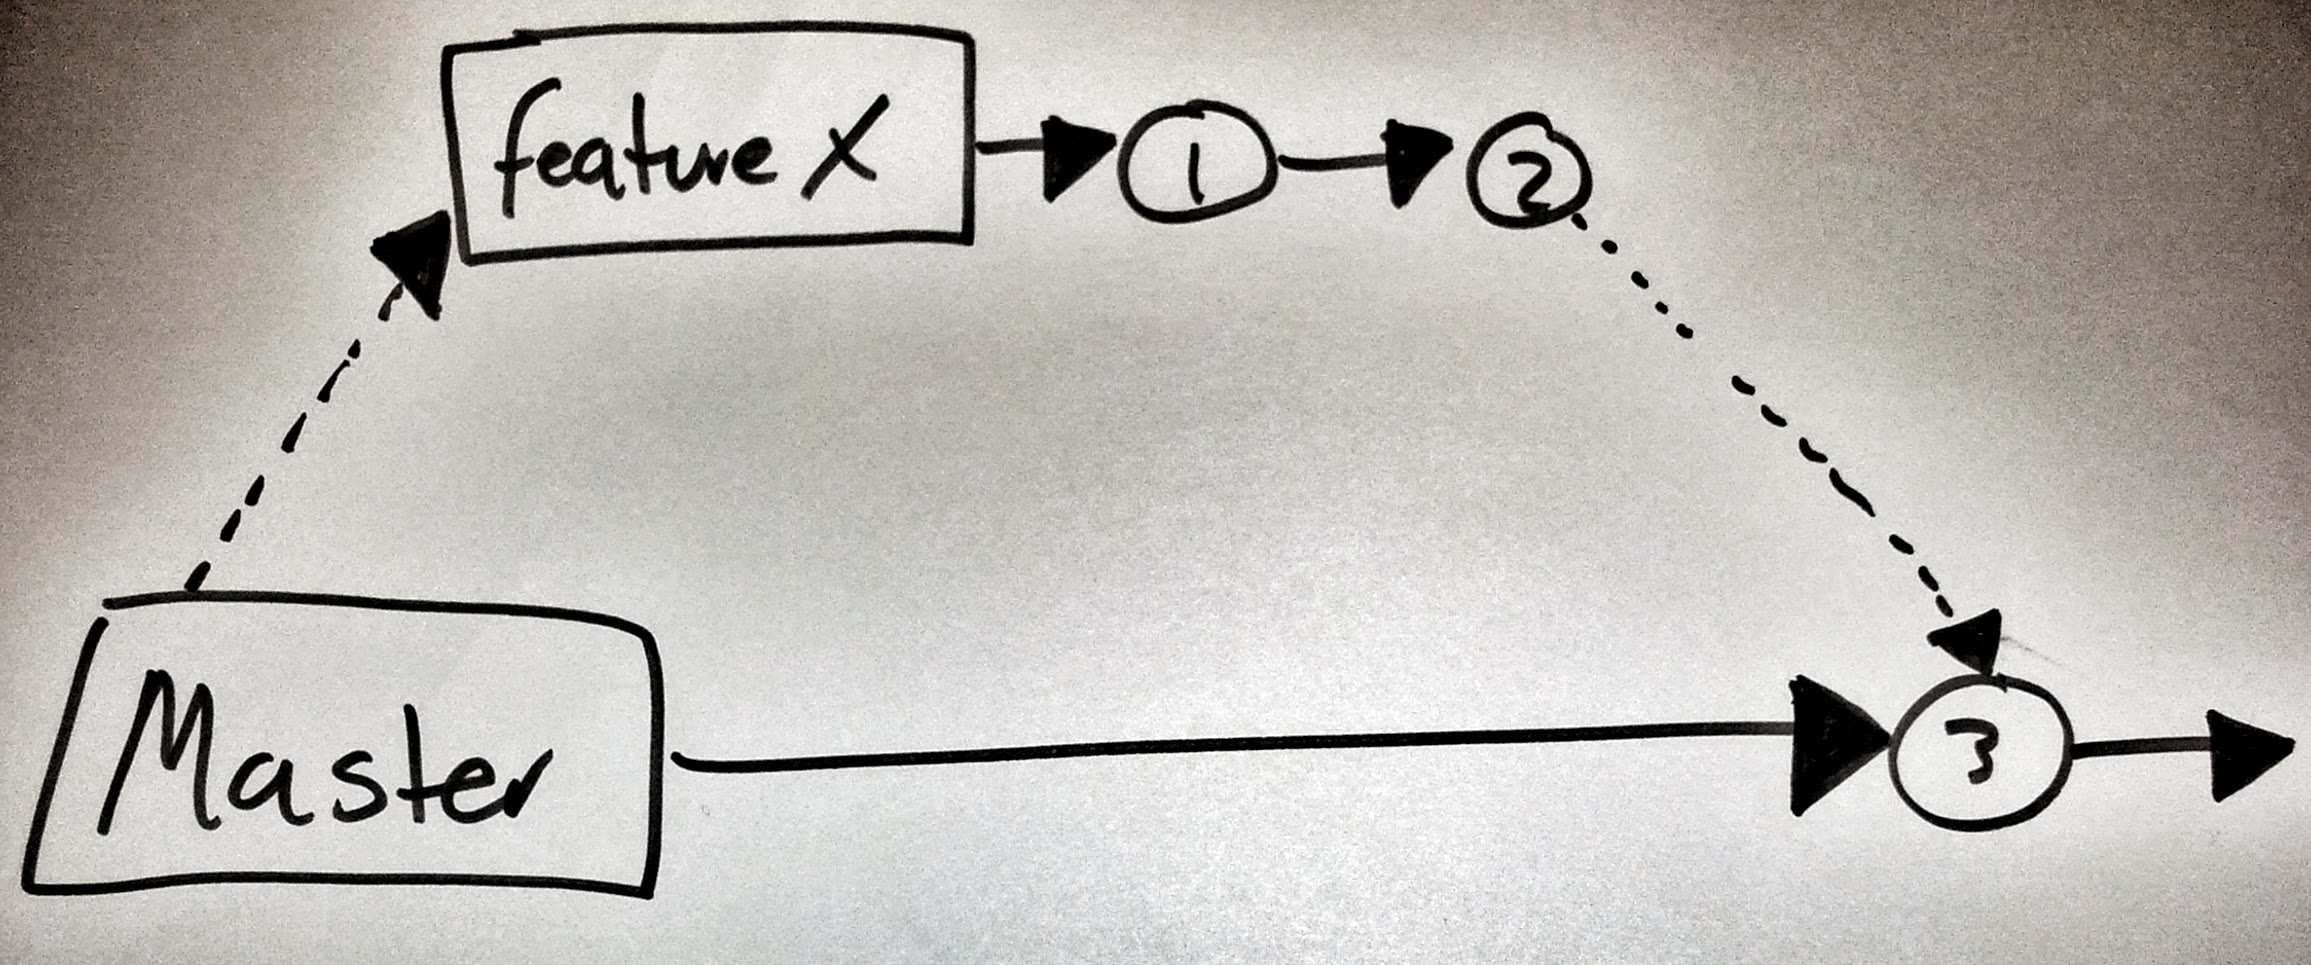 feature X
1
2
Master
3